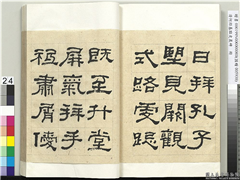 日拜孔子
望見闕觀
式路虔跽
既至升堂
屏氣拜手
祗肅屑僾
24